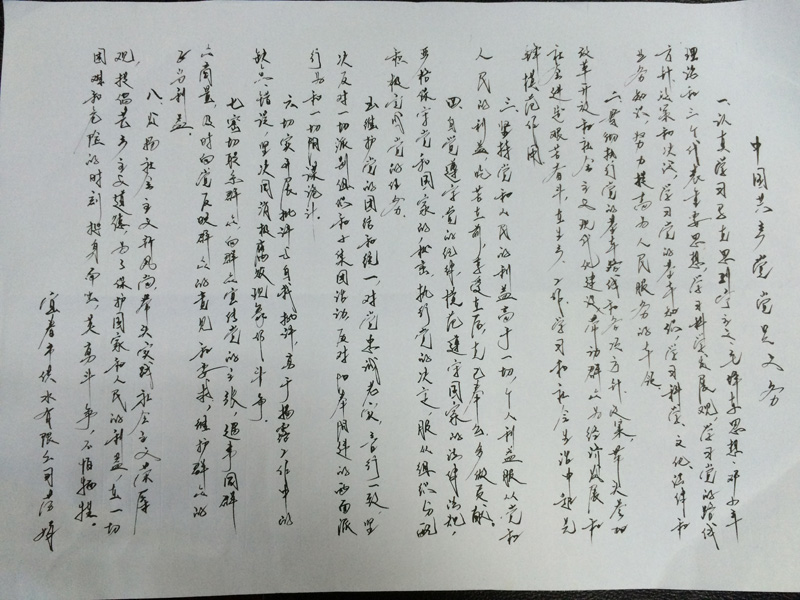 中国共产党党员义务
一、认真学习马克思列宁主义、毛泽东思想、邓小平
理论和三个代表重要思想，学习科学发展观，学习党的路线
方针、政策和决议，学习党的基本知识，学习科学、文化、法律和
业务知识，努力提高为人民服务的本领。
二、贯彻执行党的基本路线和各项方针、政策，带头参加
改革开放和社会主义现代化建设，带动群众为经济发展和
社会进步艰苦奋斗，在生产、工作、学习和社会生活中起先
锋模范作用
三、坚持党和人民的利益高于一切，个人利益服从党和
人民的利益，吃苦在前，享受在后，克己奉公，多做贡献。
四、自觉遵守党的纪律，模范遵守国家的法律法规，
严格保守党和国家的秘密，执行党的决定，服从组织分配
积极完成党的任务。
五、维护党的团结和统一，对党忠诚老实，言行一致，坚
决反对一切派别组织和小集团活动，反对阳奉阴违的两面派
行为和一切阴谋诡计。
六、切实开展批评与自我批评，勇于揭露工作中的
缺点错误，坚决同消极腐败现象作斗争。
七、密切联系群众，向群众宣传党的主张，遇事同群
众商量，及时向党反映群众的意见和要求，维护群众的
正当利益。
八、发扬社会主义新风尚，带头实践社会主义荣辱
观，提倡共产主义道德，为了保护国家和人民的利益，在一切
困难和危险的时刻挺身而出，英勇斗争，不怕牺牲。
宜春市供水有限公司